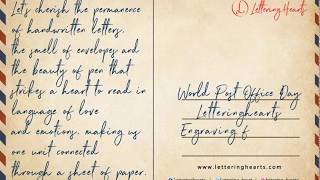 Let's cherish the permanence
of handwritten letters,
the smell of envelopes and
the beauty of pen that
strikes a heart to read in
language of love
and emotions, making us
one unit connected
through a sheet of paper.
Lettering Hearts
World Post Office Day
Letteringhearts
Engraving f
www.letteringhearts.com